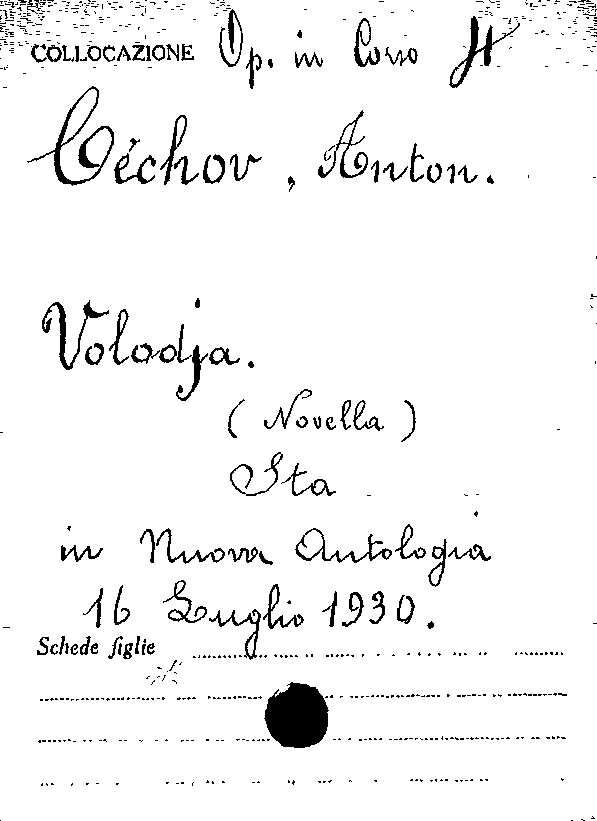 COLLOCAZIONE Op. in Corso H
Céchov, Anton.
Volodja.
(Novella)
Sta
in Nuova Antologia
16 Luglio 1930.
Schede figlie